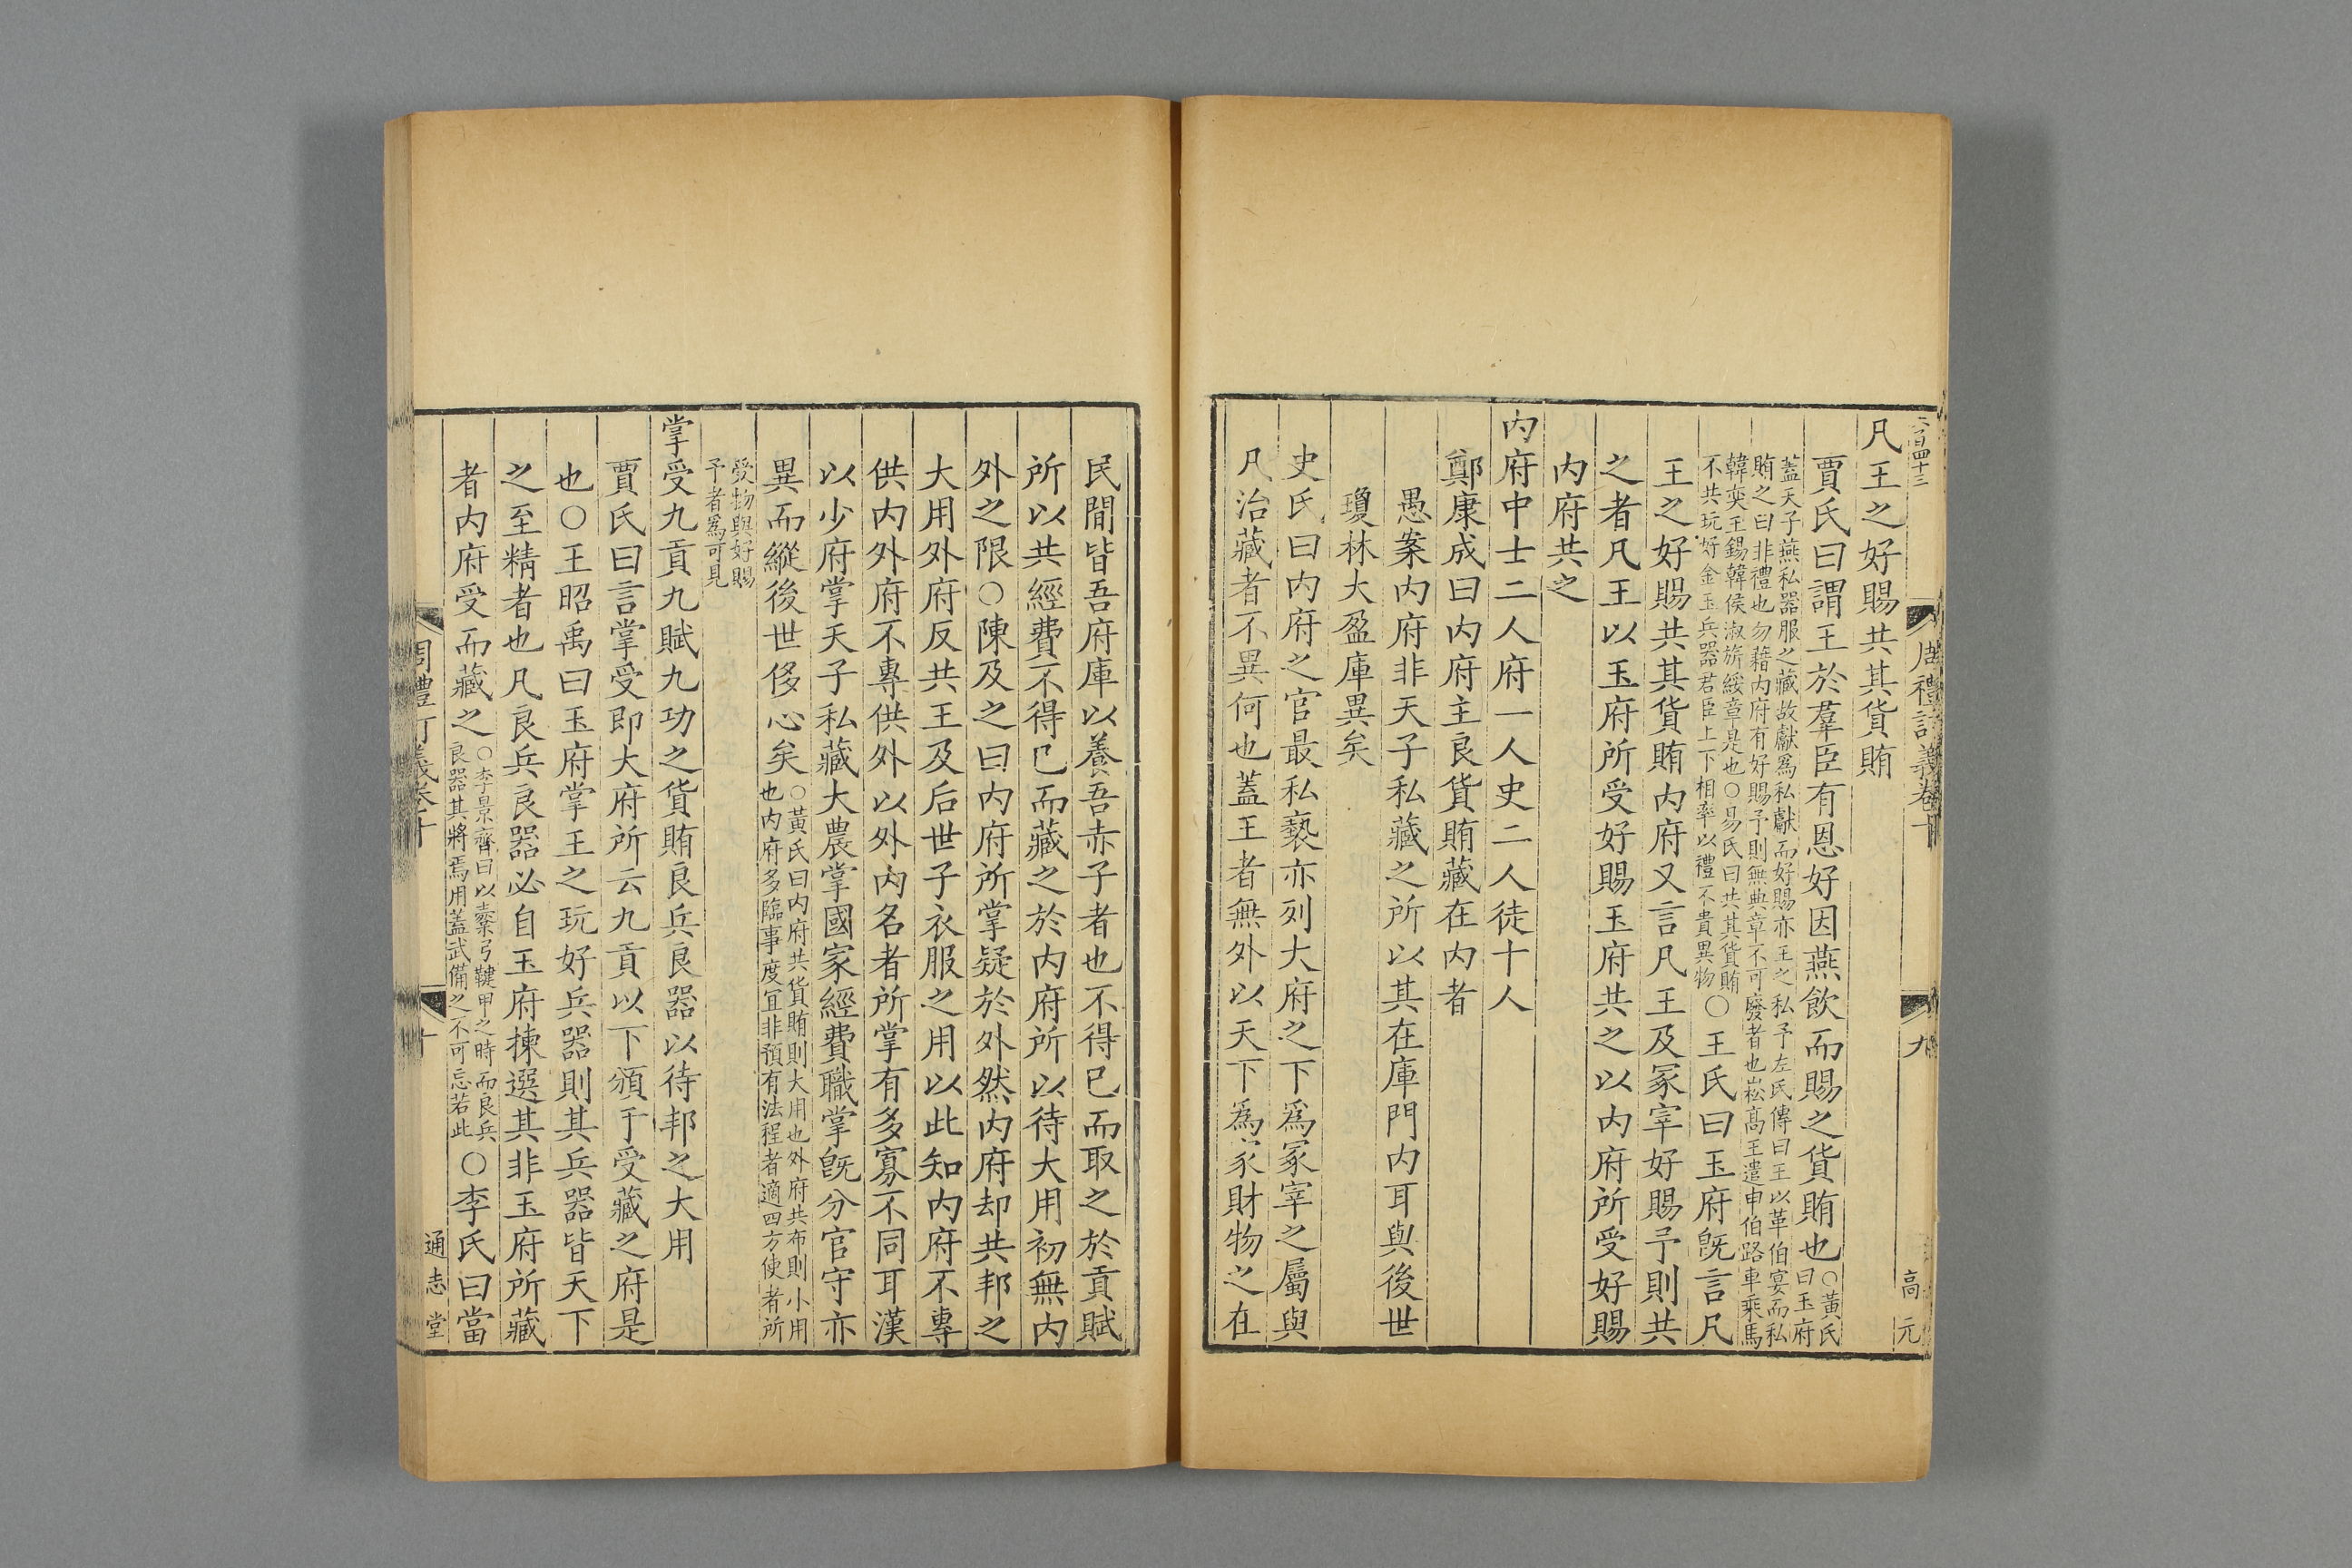 六百四十三
周禮訂義卷十
九
高元
凡王之好賜共其貨賄
賈氏曰謂王於羣臣有恩好因燕飮而賜之貨賄也○黃氏
曰玉府
蓋天子燕私器服之藏故獻爲私獻而好賜亦王之私予左氏傳曰王以革伯宴而私
賄之曰非禮也勿藉內府有好賜予則無典章不可廢者也崧高王遣申伯路車乘馬
韓奕王錫韓侯淑旂綏章是也○易氏曰共其貨賄
不共玩好金玉兵器君臣上下相率以禮不貴異物
○王氏曰玉府旣言凡
王之好賜共其貨賄內府又言凡王及冢宰好賜予則共
之者凡王以玉府所受好賜玉府共之以內府所受好賜
內府共之
內府中士二人府一人史二人徒十人
鄭康成曰內府主良貨賄藏在內者
愚案內府非天子私藏之所以其在庫門內耳與後世
瓊林大盈庫異矣
史氏曰內府之官最私褻亦列大府之下爲冢宰之屬與
凡治藏者不異何也蓋王者無外以天下爲家財物之在
民間皆吾府庫以養吾赤子者也不得已而取之於貢賦
所以共經費不得已而藏之於內府所以待大用初無內
外之限○陳及之曰內府所掌疑於外然內府却共邦之
大用外府反共王及后世子衣服之用以此知內府不專
供內外府不專供外以外內名者所掌有多寡不同耳漢
以少府掌天子私藏大農掌國家經費職掌旣分官守亦
異而縱後世侈心矣○黃氏曰內府共貨賄則大用也外府共布則小用
也內府多臨事度宜非預有法程者適四方使者所
受物與好賜
予者爲可見
掌受九貢九賦九功之貨賄良兵良器以待邦之大用
賈氏曰言掌受卽大府所云九貢以下頒于受藏之府是
也○王昭禹曰玉府掌王之玩好兵器則其兵器皆天下
之至精者也凡良兵良器必自玉府揀選其非玉府所藏
者內府受而藏之○李景齊曰以櫜弓鞬甲之時而良兵
良器其將焉用蓋武備之不可忘若此
○李氏曰當
周禮訂義卷十
十
通志堂